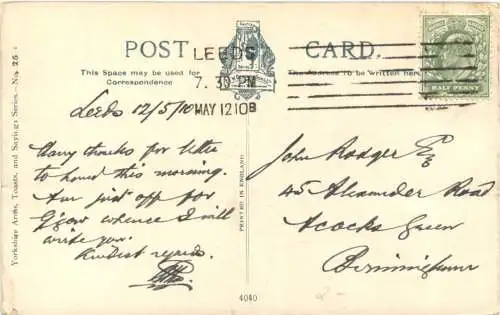 POST CARD.
This Space may be used for
Correspondence
The Address to be written here
LEEDS
7.30 PM
MAY 12 10B
HALF PENNY
Yorkshire Arms, Toasts, and Sayings Series—No. 25
Leeds 12/5/10
Many thanks for letter
to hand this morning.
Am just off for
G'gow whence I will
write you.
Kindest regards.
PRINTED IN ENGLAND
John Rodger Esq
45 Alexander Road
Acocks Green
Birmingham
4040